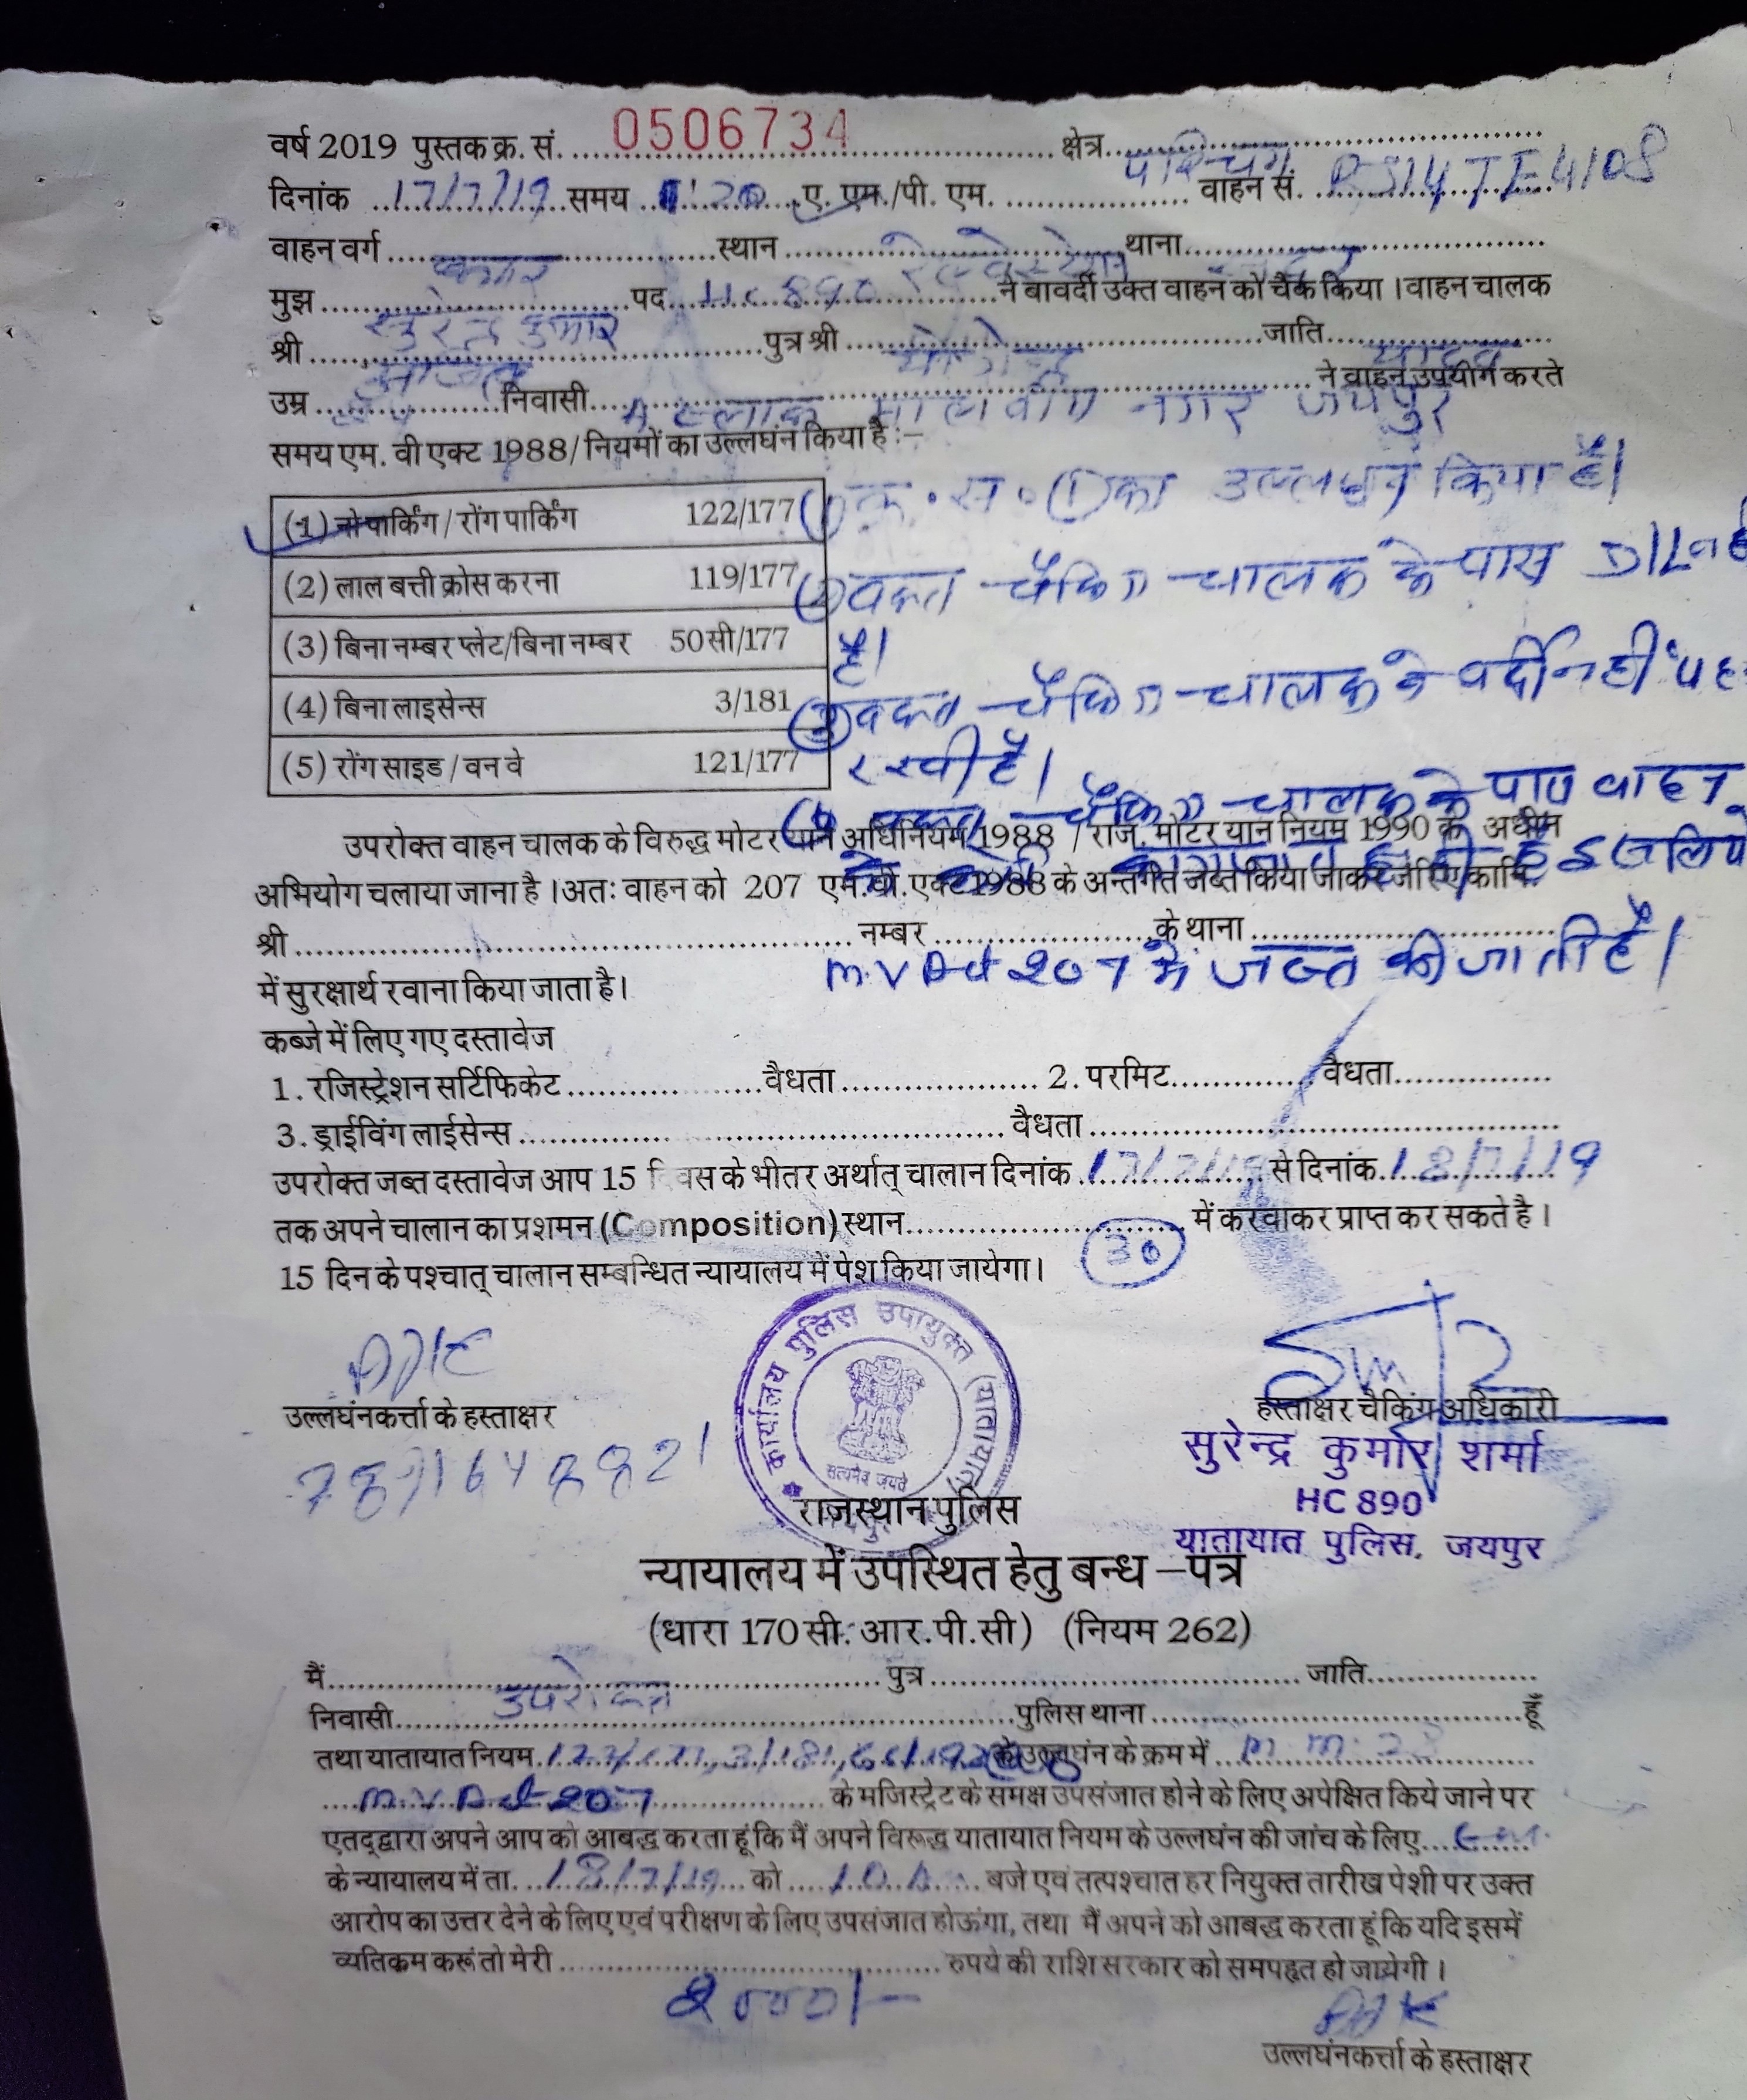 वर्ष 2019 पुस्तक क्र. सं. 0506734 क्षेत्र पश्चिम
दिनांक 17/7/19 समय 1:20 ए. एम./पी. एम. वाहन सं. RJ14TE4108
वाहन वर्ग स्थान थाना
मुझ सुरेन्द्र कुमार पद HC 890 ने बावर्दी उक्त वाहन को चैक किया । वाहन चालक
श्री पुत्र श्री जाति यादव
उम्र निवासी A ब्लाक मालवीय नगर जयपुर ने वाहन उपयोग करते
समय एम. वी एक्ट 1988/ नियमों का उल्लघंन किया है :–
(1) नो पार्किंग / रोंग पार्किंग 122/177
(2) लाल बत्ती क्रोस करना 119/177
(3) बिना नम्बर प्लेट/बिना नम्बर 50सी/177
(4) बिना लाइसेन्स 3/181
(5) रोंग साइड / वन वे 121/177
(1) क्र. स. (1) का उल्लघंन किया है।
(2) वक्त चैकिंग चालक के पास D/L
है।
(3) वक्त चैकिंग चालक ने वर्दी नहीं
रखी है।
वक्त चैकिंग चालक के पास वाहन
इसलिये
उपरोक्त वाहन चालक के विरुद्ध मोटर यान अधिनियम 1988 / राज. मोटर यान नियम 1990 के अधीन
अभियोग चलाया जाना है । अतः वाहन को 207 एम. वी. एक्ट 1988 के अन्तर्गत जब्त किया जाकर जरिए कानि.
श्री नम्बर के थाना
M.V Act 207 में जब्त की जाती है।
में सुरक्षार्थ रवाना किया जाता है।
कब्जे में लिए गए दस्तावेज
1. रजिस्ट्रेशन सर्टिफिकेट वैधता 2. परमिट वैधता
3. ड्राईविंग लाईसेन्स वैधता
उपरोक्त जब्त दस्तावेज आप 15 दिवस के भीतर अर्थात् चालान दिनांक 17/7/19 से दिनांक 18/7/19
तक अपने चालान का प्रशमन (Composition) स्थान में करवाकर प्राप्त कर सकते है ।
15 दिन के पश्चात् चालान सम्बन्धित न्यायालय में पेश किया जायेगा।
30
उल्लघंनकर्त्ता के हस्ताक्षर
हस्ताक्षर चैकिंग अधिकारी
सुरेन्द्र कुमार शर्मा
HC 890
यातायात पुलिस, जयपुर
कार्यालय पुलिस उपायुक्त (यातायात)
सत्यमेव जयते
राजस्थान पुलिस
न्यायालय में उपस्थित हेतु बन्ध –पत्र
(धारा 170 सी. आर.पी.सी) (नियम 262)
मैं उपरोक्त पुत्र जाति
निवासी पुलिस थाना हूँ
तथा यातायात नियम 122/177, 3/181, के उल्लघंन के क्रम में
M.V Act 207 के मजिस्ट्रेट के समक्ष उपसंजात होने के लिए अपेक्षित किये जाने पर
एतद्द्वारा अपने आप को आबद्ध करता हूं कि मैं अपने विरूद्ध यातायात नियम के उल्लघंन की जांच के लिए
के न्यायालय में ता. 18/7/19 को 10 A बजे एवं तत्पश्चात हर नियुक्त तारीख पेशी पर उक्त
आरोप का उत्तर देने के लिए एवं परीक्षण के लिए उपसंजात होऊंगा, तथा मैं अपने को आबद्ध करता हूं कि यदि इसमें
व्यतिक्रम करूं तो मेरी 2000/- रुपये की राशि सरकार को समपहृत हो जायेगी ।
उल्लघंनकर्त्ता के हस्ताक्षर